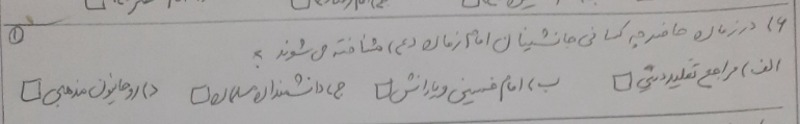 ۱۶) در زمان حاضر چه کسانی جانشینان امام زمان (عج) شناخته می شوند ؟
①
الف) مراجع تقلید دینی □ ب) امام خمینی و یارانش □ ج) دانشمندان مسلمان □ د) روحانیون مذهبی □